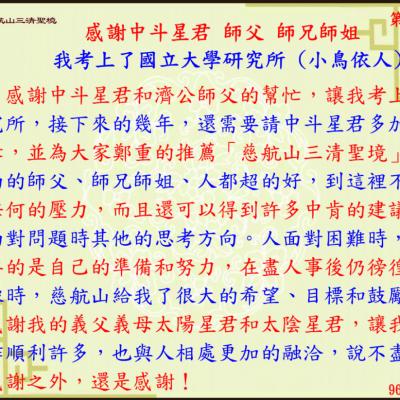 航山三清聖境
第
感謝中斗星君 師父 師兄師姐
我考上了國立大學研究所（小鳥依人）
感謝中斗星君和濟公師父的幫忙，讓我考上
究所，接下來的幾年，還需要請中斗星君多加
，並為大家鄭重的推薦「慈航山三清聖境」
的師父、師兄師姐、人都超的好，到這裡不
任何的壓力，而且還可以得到許多中肯的建議
面對問題時其他的思考方向。人面對困難時，
的是自己的準備和努力，在盡人事後仍徬徨
時，慈航山給我了很大的希望、目標和鼓勵
感謝我的義父義母太陽星君和太陰星君，讓我
作順利許多，也與人相處更加的融洽，說不盡
感謝之外，還是感謝！
96